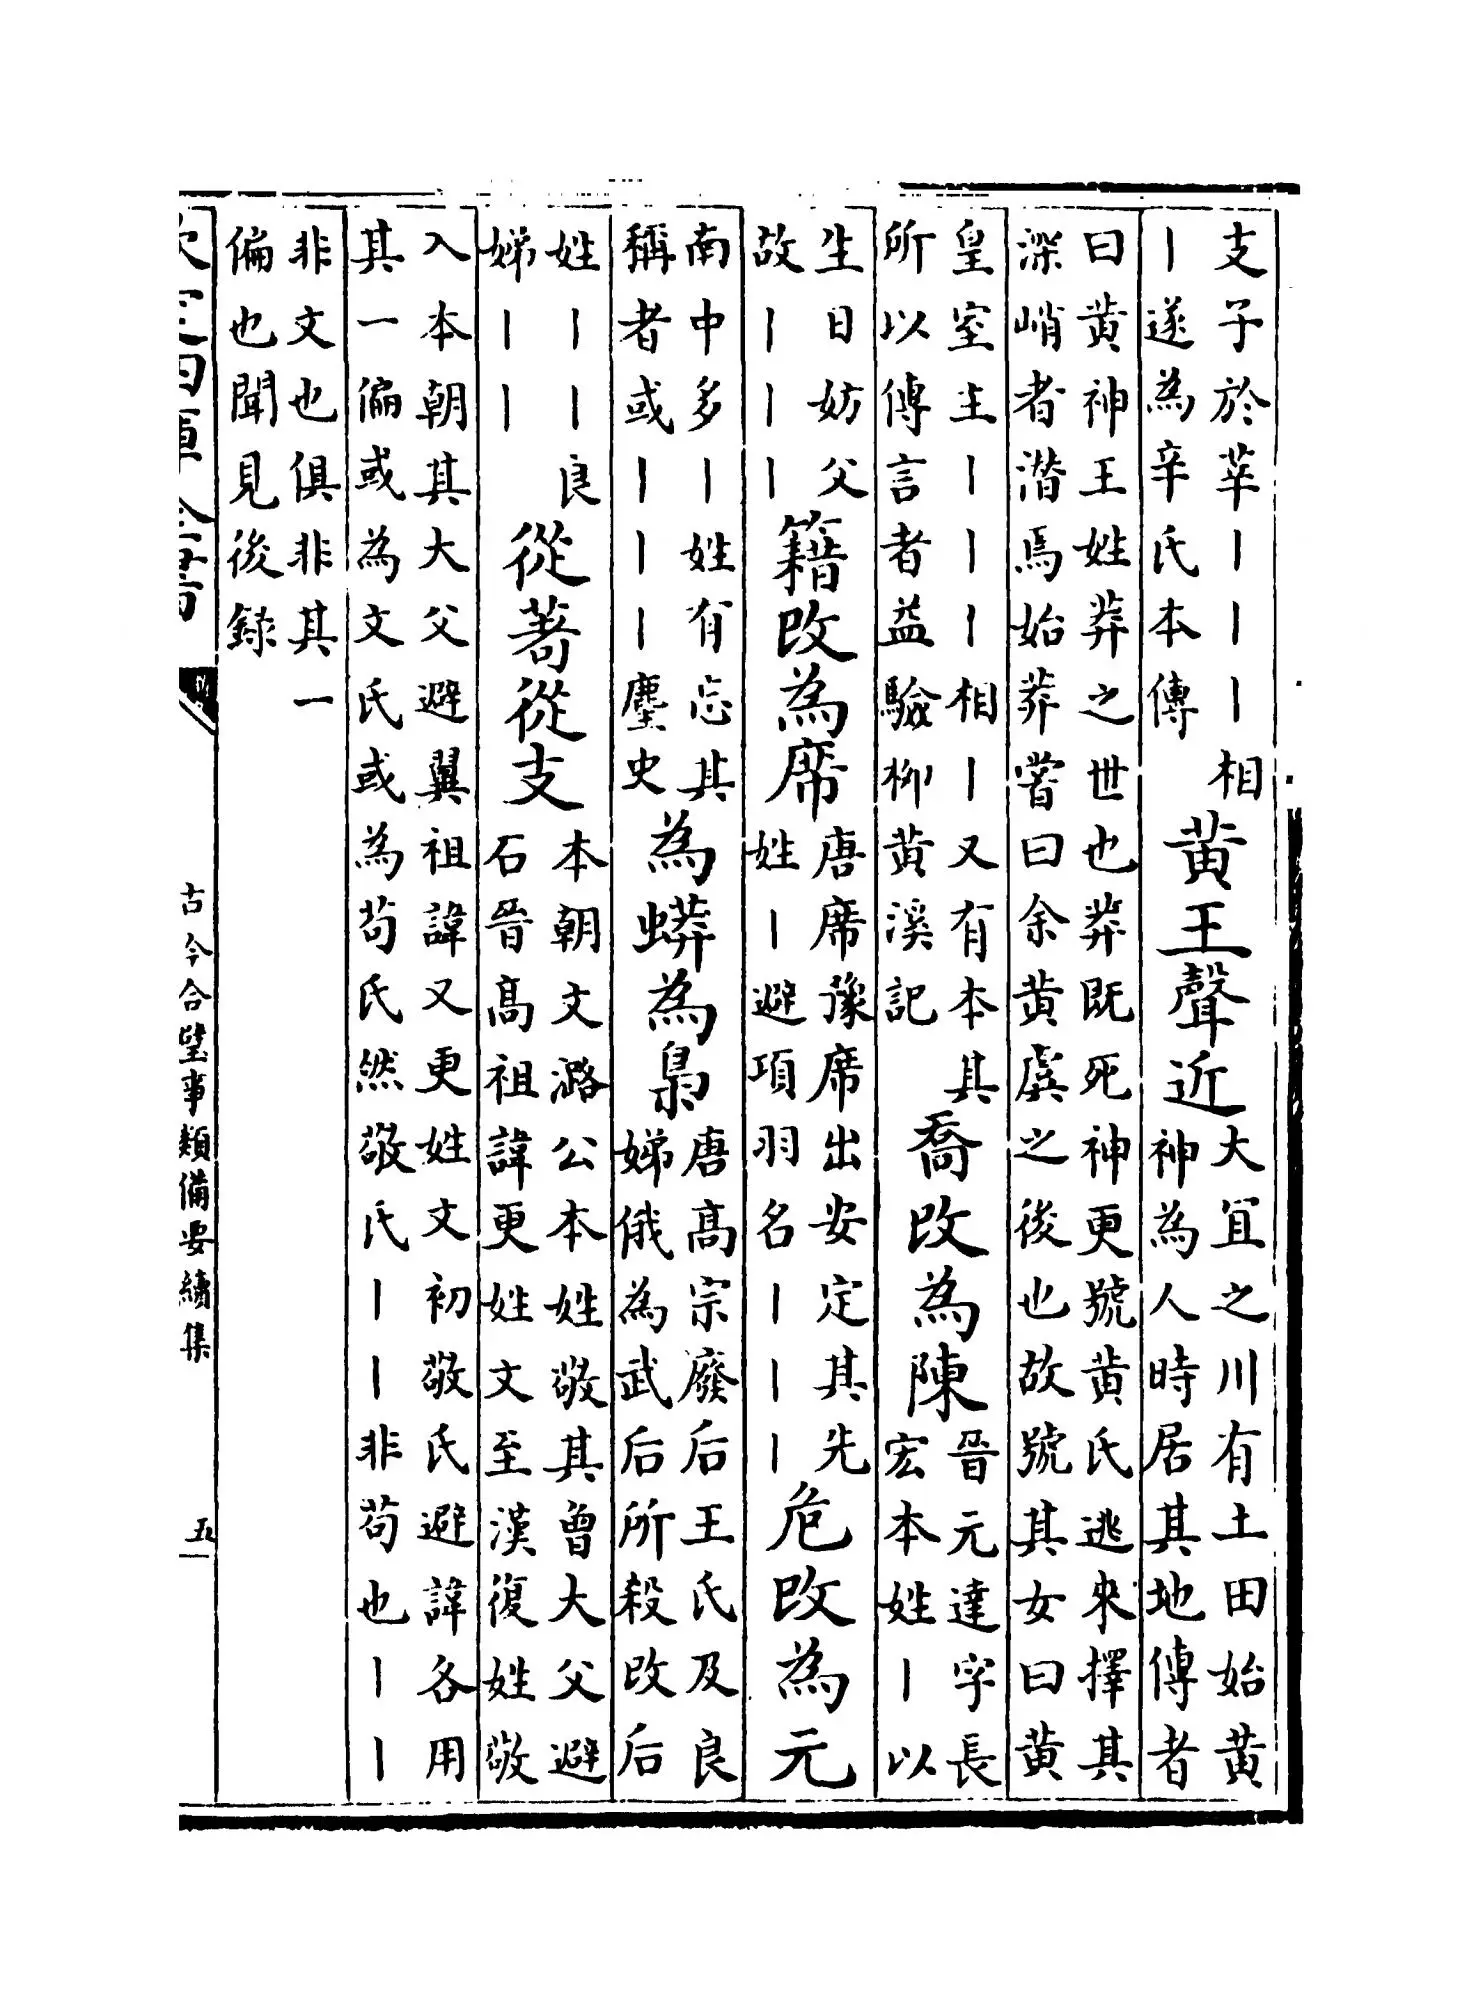 支子於莘丨丨丨相
丨遂為辛氏本傳
黃王聲近
大宜之川有土田始黃
神為人時居其地傳者
曰黃神王姓莽之世也莽既死神更號黃氏逃來擇其
深峭者潛焉始莽嘗曰余黃虞之後也故號其女曰黃
皇室主丨丨丨相丨又有本其
所以傳言者益驗柳黃溪記
喬改為陳
晉元達字長
宏本姓丨以
生日妨父
故丨丨丨
籍改為席
唐席豫席出安定其先
姓丨避項羽名丨丨丨
危改為元
南中多丨姓有忘其
稱者或丨丨丨塵史
為蟒為梟
唐高宗廢后王氏及良
娣俄為武后所殺改后
姓丨丨良
娣丨丨
從茍從支
本朝文潞公本姓敬其曾大父避
石晉高祖諱更姓文至漢復姓敬
入本朝其大父避翼祖諱又更姓文初敬氏避諱各用
其一偏或為文氏或為茍氏然敬氏丨丨非茍也丨丨
非文也俱非其一
偏也聞見後錄
欽定四庫全書
古今合璧事類備要續集
五